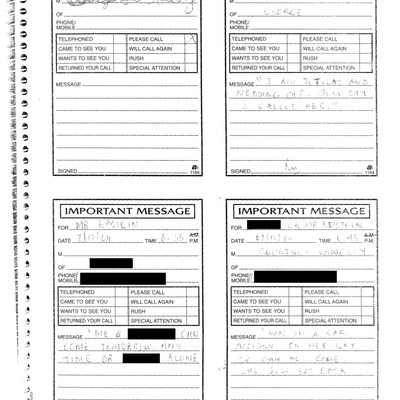 M
OF
PHONE/
MOBILE
TELEPHONED PLEASE CALL X
CAME TO SEE YOU WILL CALL AGAIN
WANTS TO SEE YOU RUSH
RETURNED YOUR CALL SPECIAL ATTENTION
MESSAGE
SIGNED 1184
M GEORGE
OF
PHONE/
MOBILE
TELEPHONED PLEASE CALL
CAME TO SEE YOU WILL CALL AGAIN
WANTS TO SEE YOU RUSH
RETURNED YOUR CALL SPECIAL ATTENTION
MESSAGE "I AM JET-LAG AND
JUST SAY
I CALLED HER."
SIGNED 1184
IMPORTANT MESSAGE
FOR MR EPSTEIN
DATE TIME 6:35 A.M. P.M.
M
OF
PHONE/
MOBILE
TELEPHONED PLEASE CALL
CAME TO SEE YOU WILL CALL AGAIN
WANTS TO SEE YOU RUSH
RETURNED YOUR CALL SPECIAL ATTENTION
MESSAGE "ME & CAN
COME TOMORROW ANY
TIME OR ALONE
IMPORTANT MESSAGE
FOR OR MR EPSTEIN
DATE TIME 6:45 A.M. P.M.
M COURTNEY
OF
PHONE/
MOBILE
TELEPHONED PLEASE CALL
CAME TO SEE YOU WILL CALL AGAIN
WANTS TO SEE YOU RUSH
RETURNED YOUR CALL SPECIAL ATTENTION
MESSAGE "WAS IN A CAR
ACCIDENT ON HER WAY
COME
BACK